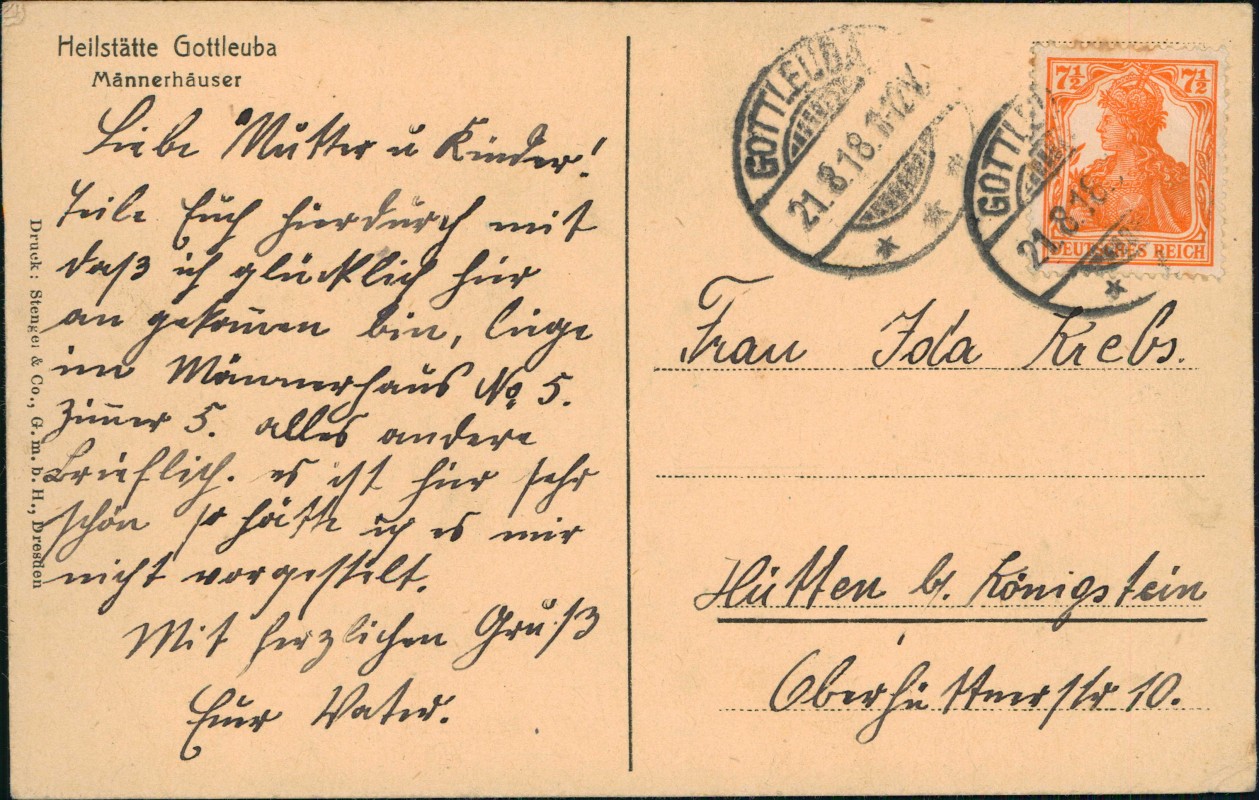 Heilstätte Gottleuba
Männerhäuser
Liebe Mutter u Kinder!
Teile Euch hierdurch mit
daß ich glücklich hier
an gekom̄en bin, liege
im Männerhaus No 5.
Zim̄er 5. alles andere
Brieflich. es ist hier sehr
schön so hätte ich es mir
nicht vorgestelt.
Mit herzlichen Gruß
Euer Vater.
Druck: Stengel & Co., G. m. b. H., Dresden
GOTTLEUBA
21.8.18.11-12V.
GOTTLEUBA
21.8.18
7½ 7½
DEUTSCHES REICH
Frau Ida Krebs.
Hütten b. Königstein
Oberhüttnerstr 10.